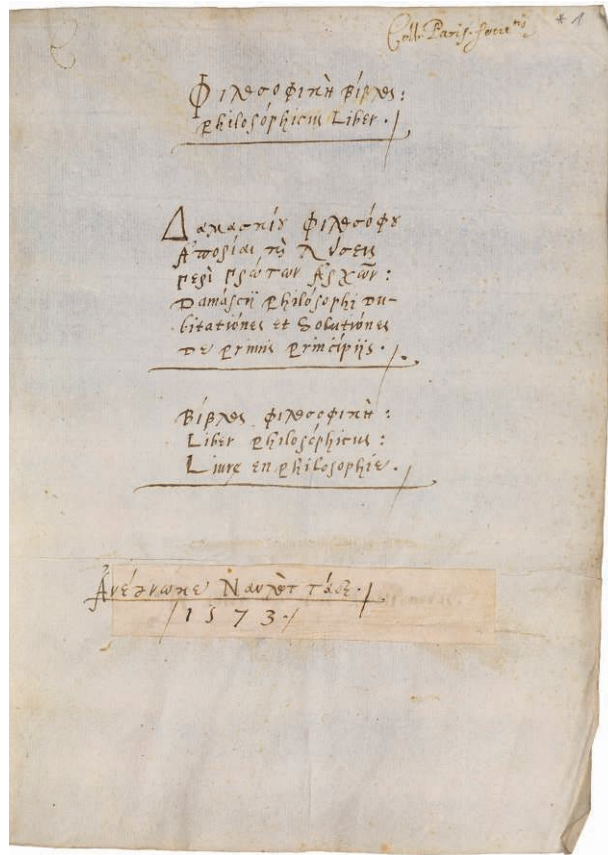 Coll. Paris. Societis
* 1
Φιλοσοφικὴ Βίβλος:
Philosóphicus Liber.
Δαμασκίου Φιλοσόφου
Ἀπορίαι καὶ Λύσεις
περὶ πρώτων Ἀρχῶν:
Damáscij Philosophi Du-
bitatiónes et Solutiónes
De Primis Princípijs.
Βίβλος φιλοσοφικὴ:
Liber Philosóphicus:
Liure en Philosophie.
Ἀνέγνωκε Ναυλὸτ τάδε.
1573.